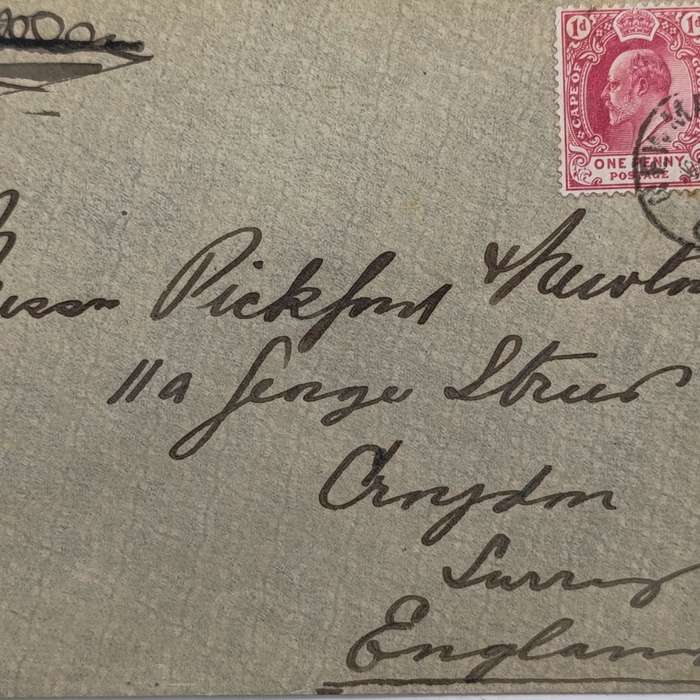 1d 1d
CAPE OF
ONE PENNY
POSTAGE
Pickford &
11a George Street
Croydon
Surrey
England